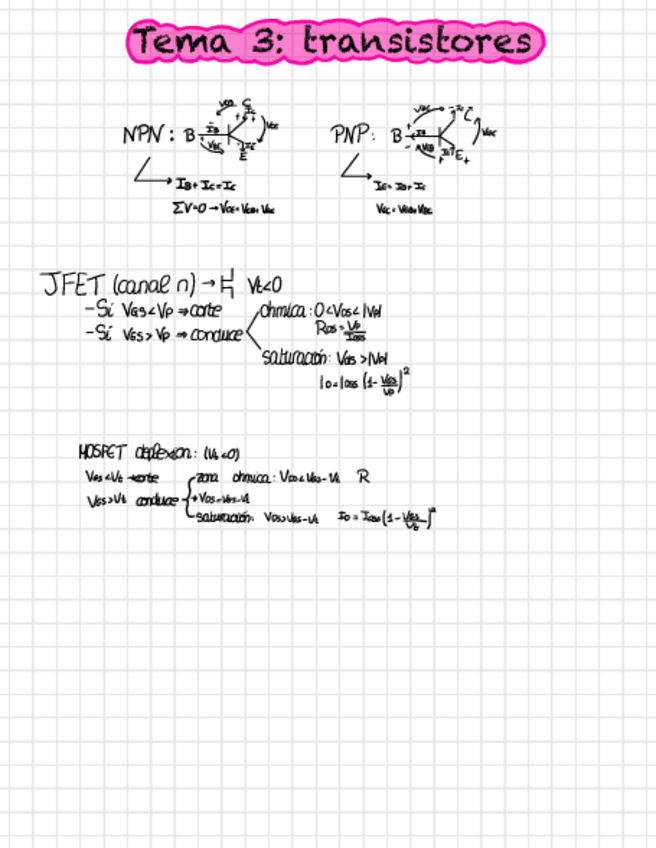 Tema 3: transistores
NPN: B C E
PNP: B C E
IB + IC = IE
IE = IB + IC
ΣV=0 → VCE = VCB + VBE
JFET (canal n) → Vt<0
- Si VGS < VP ⇒ corte
- Si VGS > VP ⇒ conduce
ohmica: 0<VDS<|VP|
RDS = VP/IDSS
saturación: VDS >|VP|
ID = IDSS (1 - VGS/VP)²
MOSFET deplexion: (Vt <0)
VGS < Vt corte
VGS > Vt conduce
zona ohmica: VDS < VGS - Vt R
VDS = VGS - Vt
saturación: VDS > VGS - Vt ID = IDSS (1 - VGS/Vt)²